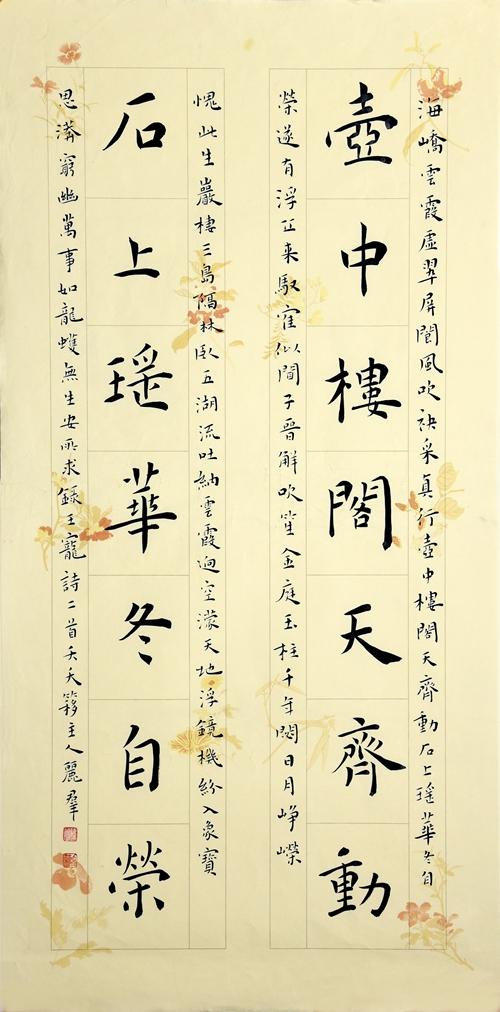 海嶠雲霞虛翠屏閬風吹袂采真行壺中樓閣天齊動石上瑤華冬自
壺中樓閣天齊動
榮遂有浮丘来馭寉似聞子晉解吹笙金庭玉柱千年閟日月崢嶸
愧此生巖棲三島隔林臥五湖流吐納雲霞迥空濛天地浮鏡機紛入象寶
石上瑤華冬自榮
思窮幽萬事如龍蠖無生安所求錄王寵詩二首夭夭簃主人麗羣